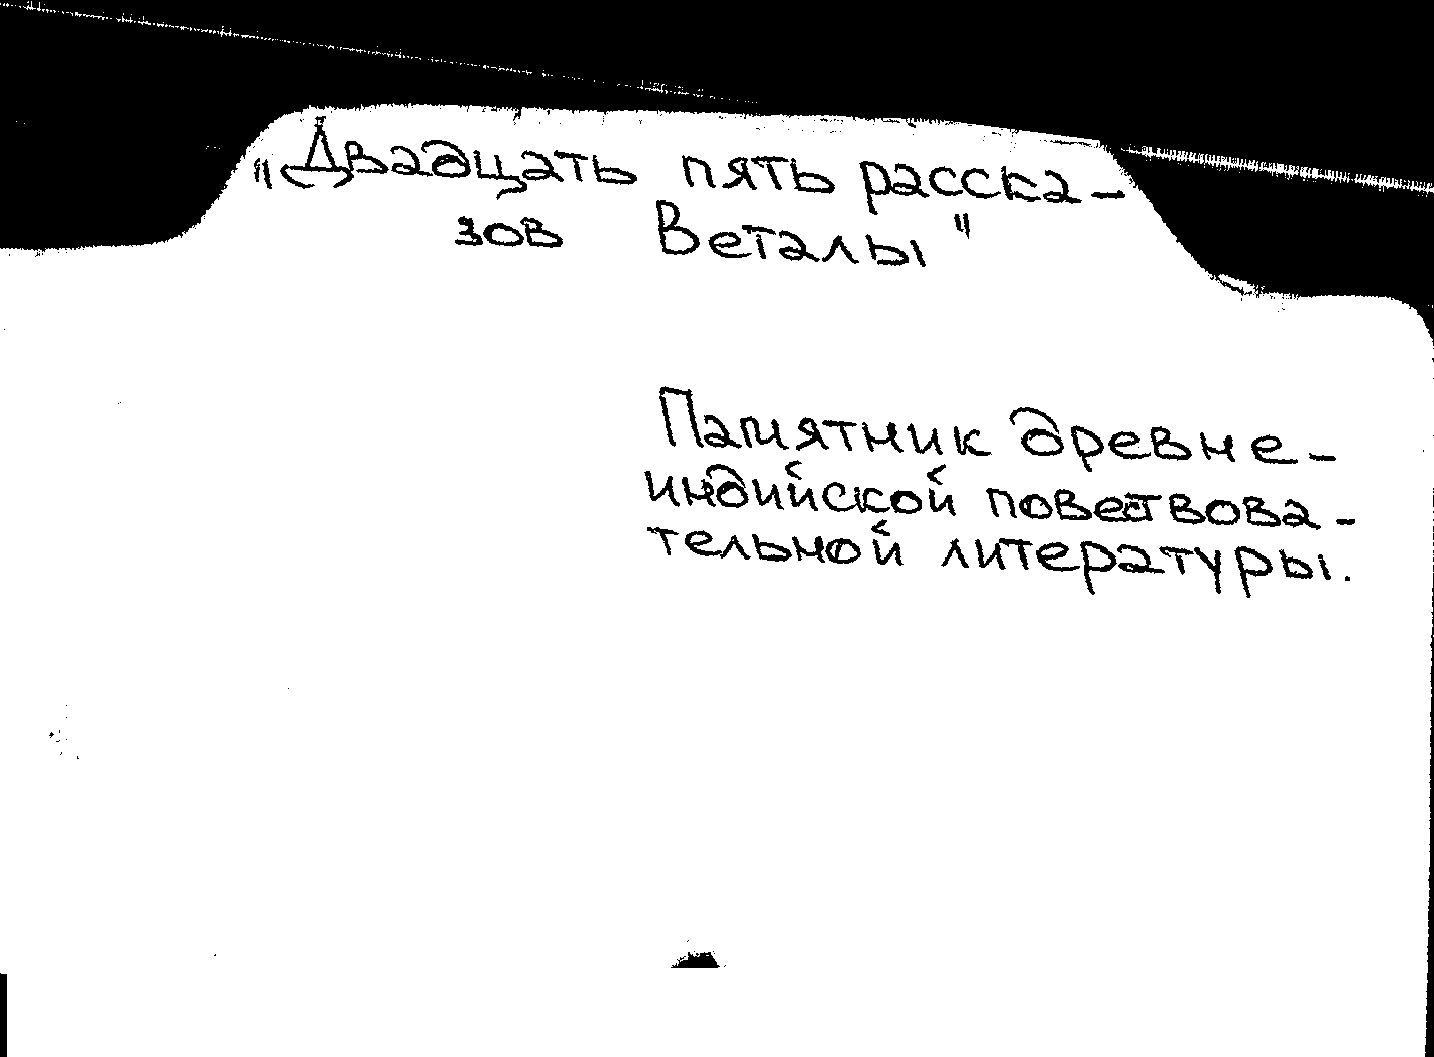 "Двадцать пять расска-
зов Веталы"
Памятник древне-
индийской повествова-
тельной литературы.